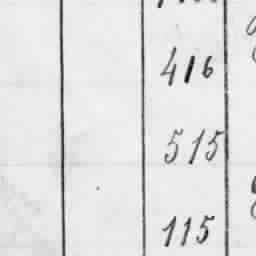 416
515
115